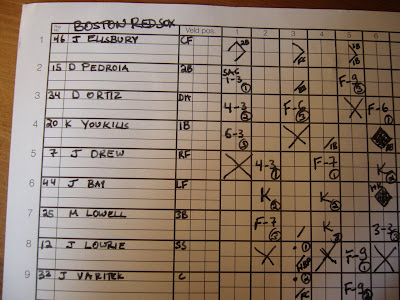 BOSTON RED SOX
Veld pos. 1 2 3 4 5 6
1 46 J ELLSBURY CF 2B 2B
2 15 D PEDROIA 2B SAC 1-3 1 F-9 5
3 34 D ORTIZ DH 4-3 2 F-6 5 F-6 1
4 20 K YOUKILLS 1B 6-3 3 1B
5 7 J DREW RF 4-3 1 F-7 1 K 2
6 44 J BAY LF K 2 K 2 HR
7 25 M LOWELL 3B F-7 3 K 3 3-3 3
8 12 J LOWRIE SS 1 HBP F-9 1
9 33 J VARITEK C F-9 2